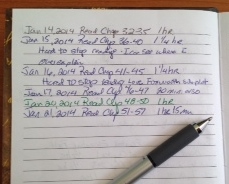 Jan 14, 2014 Read Chap 32-35 1hr
Jan 15, 2014 Read Chap 36-40 1 1/4 hr
Hard to stop reading - I can see where I
Jan 16, 2014 Read Chap 41-45 1 1/4 hr
Hard to stop reading Love
Jan 17, 2014 Read Chap 46-47 20 min
Jan 20, 2014 Read Chap 48-50 1hr
Jan 21, 2014 Read Chap 51-57 1hr 15 min